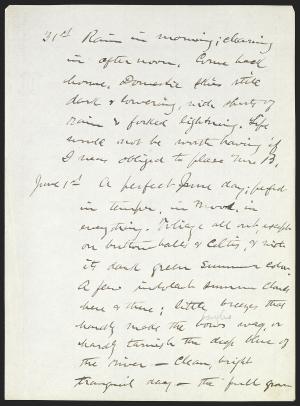 31st Rain in morning; clearing
in afternoon. Come back
home. Domestic skies still
dark & lowering, with spurts of
rain & forked lightning. Life
would not be worth having if
I was obliged to please Mrs B.
June 1st A perfect June day; perfect
in temper, in mood, in
everything. Foliage all out, except
on button balls & Celtis, & with
its dark green summer color.
A few indolent summer clouds
here & there; little breezes that
hardly make the boughs wag, or
hardly tarnish the deep blue of
the river — Clean, bright
tranquil day — the full grown